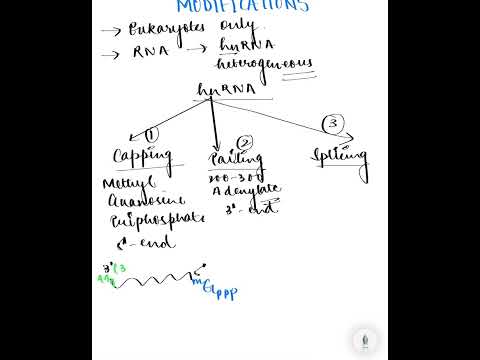 MODIFICATIONS
→ Eukaryotes Only.
→ RNA → hnRNA
heterogeneous
hnRNA
① ② ③
Capping Tailing Splicing
Methyl 200-300
Guanosine Adenylate
Triphosphate 3'-end
5'-end
3' 5'
mGppp